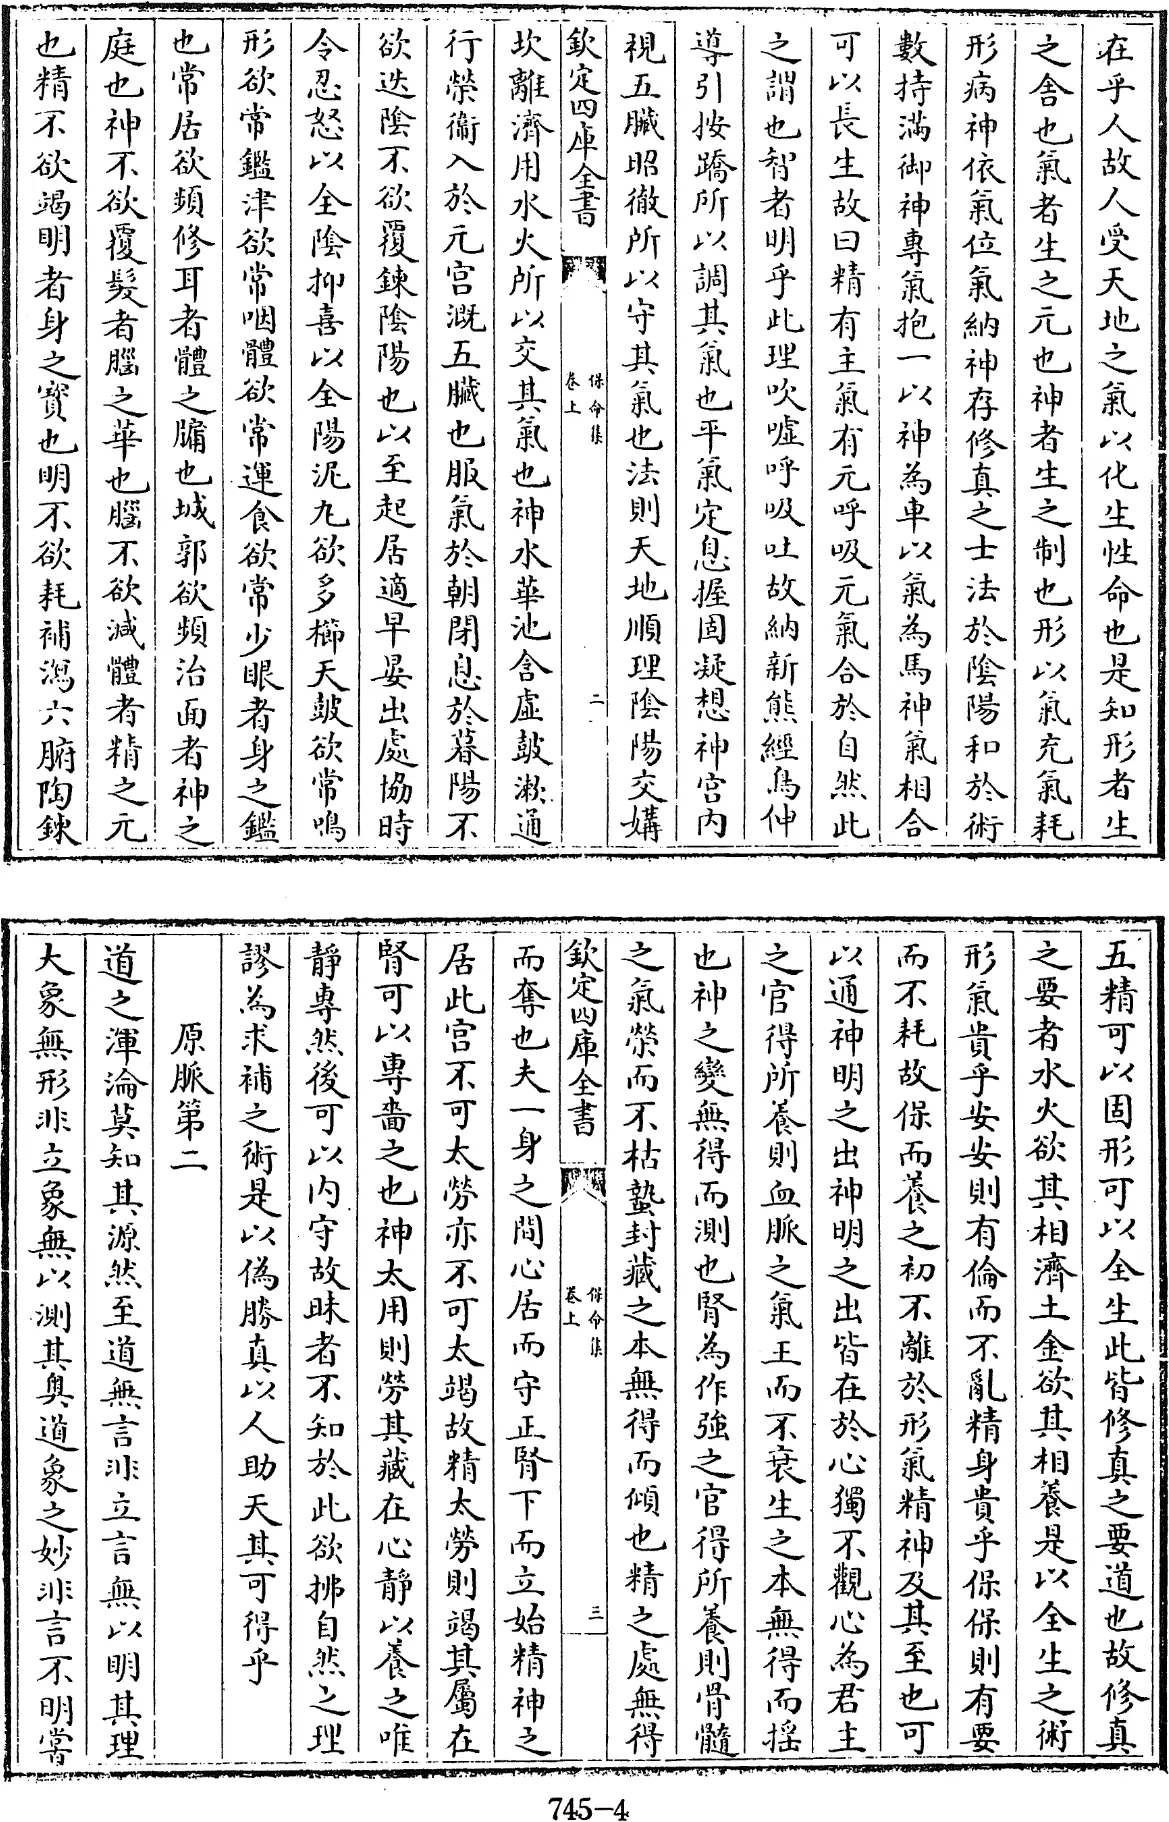 在乎人故人受天地之氣以化生性命也是知形者生
之舎也氣者生之元也神者生之制也形以氣充氣耗
形病神依氣位氣納神存修真之士法於陰陽和於術
數持滿御神專氣抱一以神為車以氣為馬神氣相合
可以長生故曰精有主氣有元呼吸元氣合於自然此
之謂也智者明乎此理吹噓呼吸吐故納新熊經鳥伸
導引按蹻所以調其氣也平氣定息握固凝想神宮内
視五臟昭徹所以守其氣也法則天地順理陰陽交媾
欽定四庫全書
保命集
卷上
二
坎離濟用水火所以交其氣也神水華池含虛皷漱通
行榮衞入於元宮溉五臟也服氣於朝閉息於暮陽不
欲迭陰不欲覆鍊陰陽也以至起居適早晏出處恊時
令忍怒以全陰抑喜以全陽泥丸欲多櫛天皷欲常鳴
形欲常鑑津欲常咽體欲常運食欲常少眼者身之鑑
也常居欲頻修耳者體之牖也城郭欲頻治面者神之
庭也神不欲覆髮者腦之華也腦不欲減體者精之元
也精不欲竭明者身之寳也明不欲耗補瀉六腑陶鍊
五精可以固形可以全生此皆修真之要道也故修真
之要者水火欲其相濟土金欲其相養是以全生之術
形氣貴乎安安則有倫而不亂精身貴乎保保則有要
而不耗故保而養之初不離於形氣精神及其至也可
以通神明之出神明之出皆在於心獨不觀心為君主
之官得所養則血脈之氣王而不衰生之本無得而揺
也神之變無得而測也腎為作強之官得所養則骨髓
之氣榮而不枯蟄封藏之本無得而傾也精之處無得
欽定四庫全書
保命集
卷上
三
而奪也夫一身之間心居而守正腎下而立始精神之
居此宮不可太勞亦不可太竭故精太勞則竭其屬在
腎可以專嗇之也神太用則勞其藏在心靜以養之唯
靜專然後可以内守故昧者不知於此欲拂自然之理
謬為求補之術是以偽勝真以人助天其可得乎
原脈第二
道之渾淪莫知其源然至道無言非立言無以明其理
大象無形非立象無以測其奥道象之妙非言不明嘗
745-4